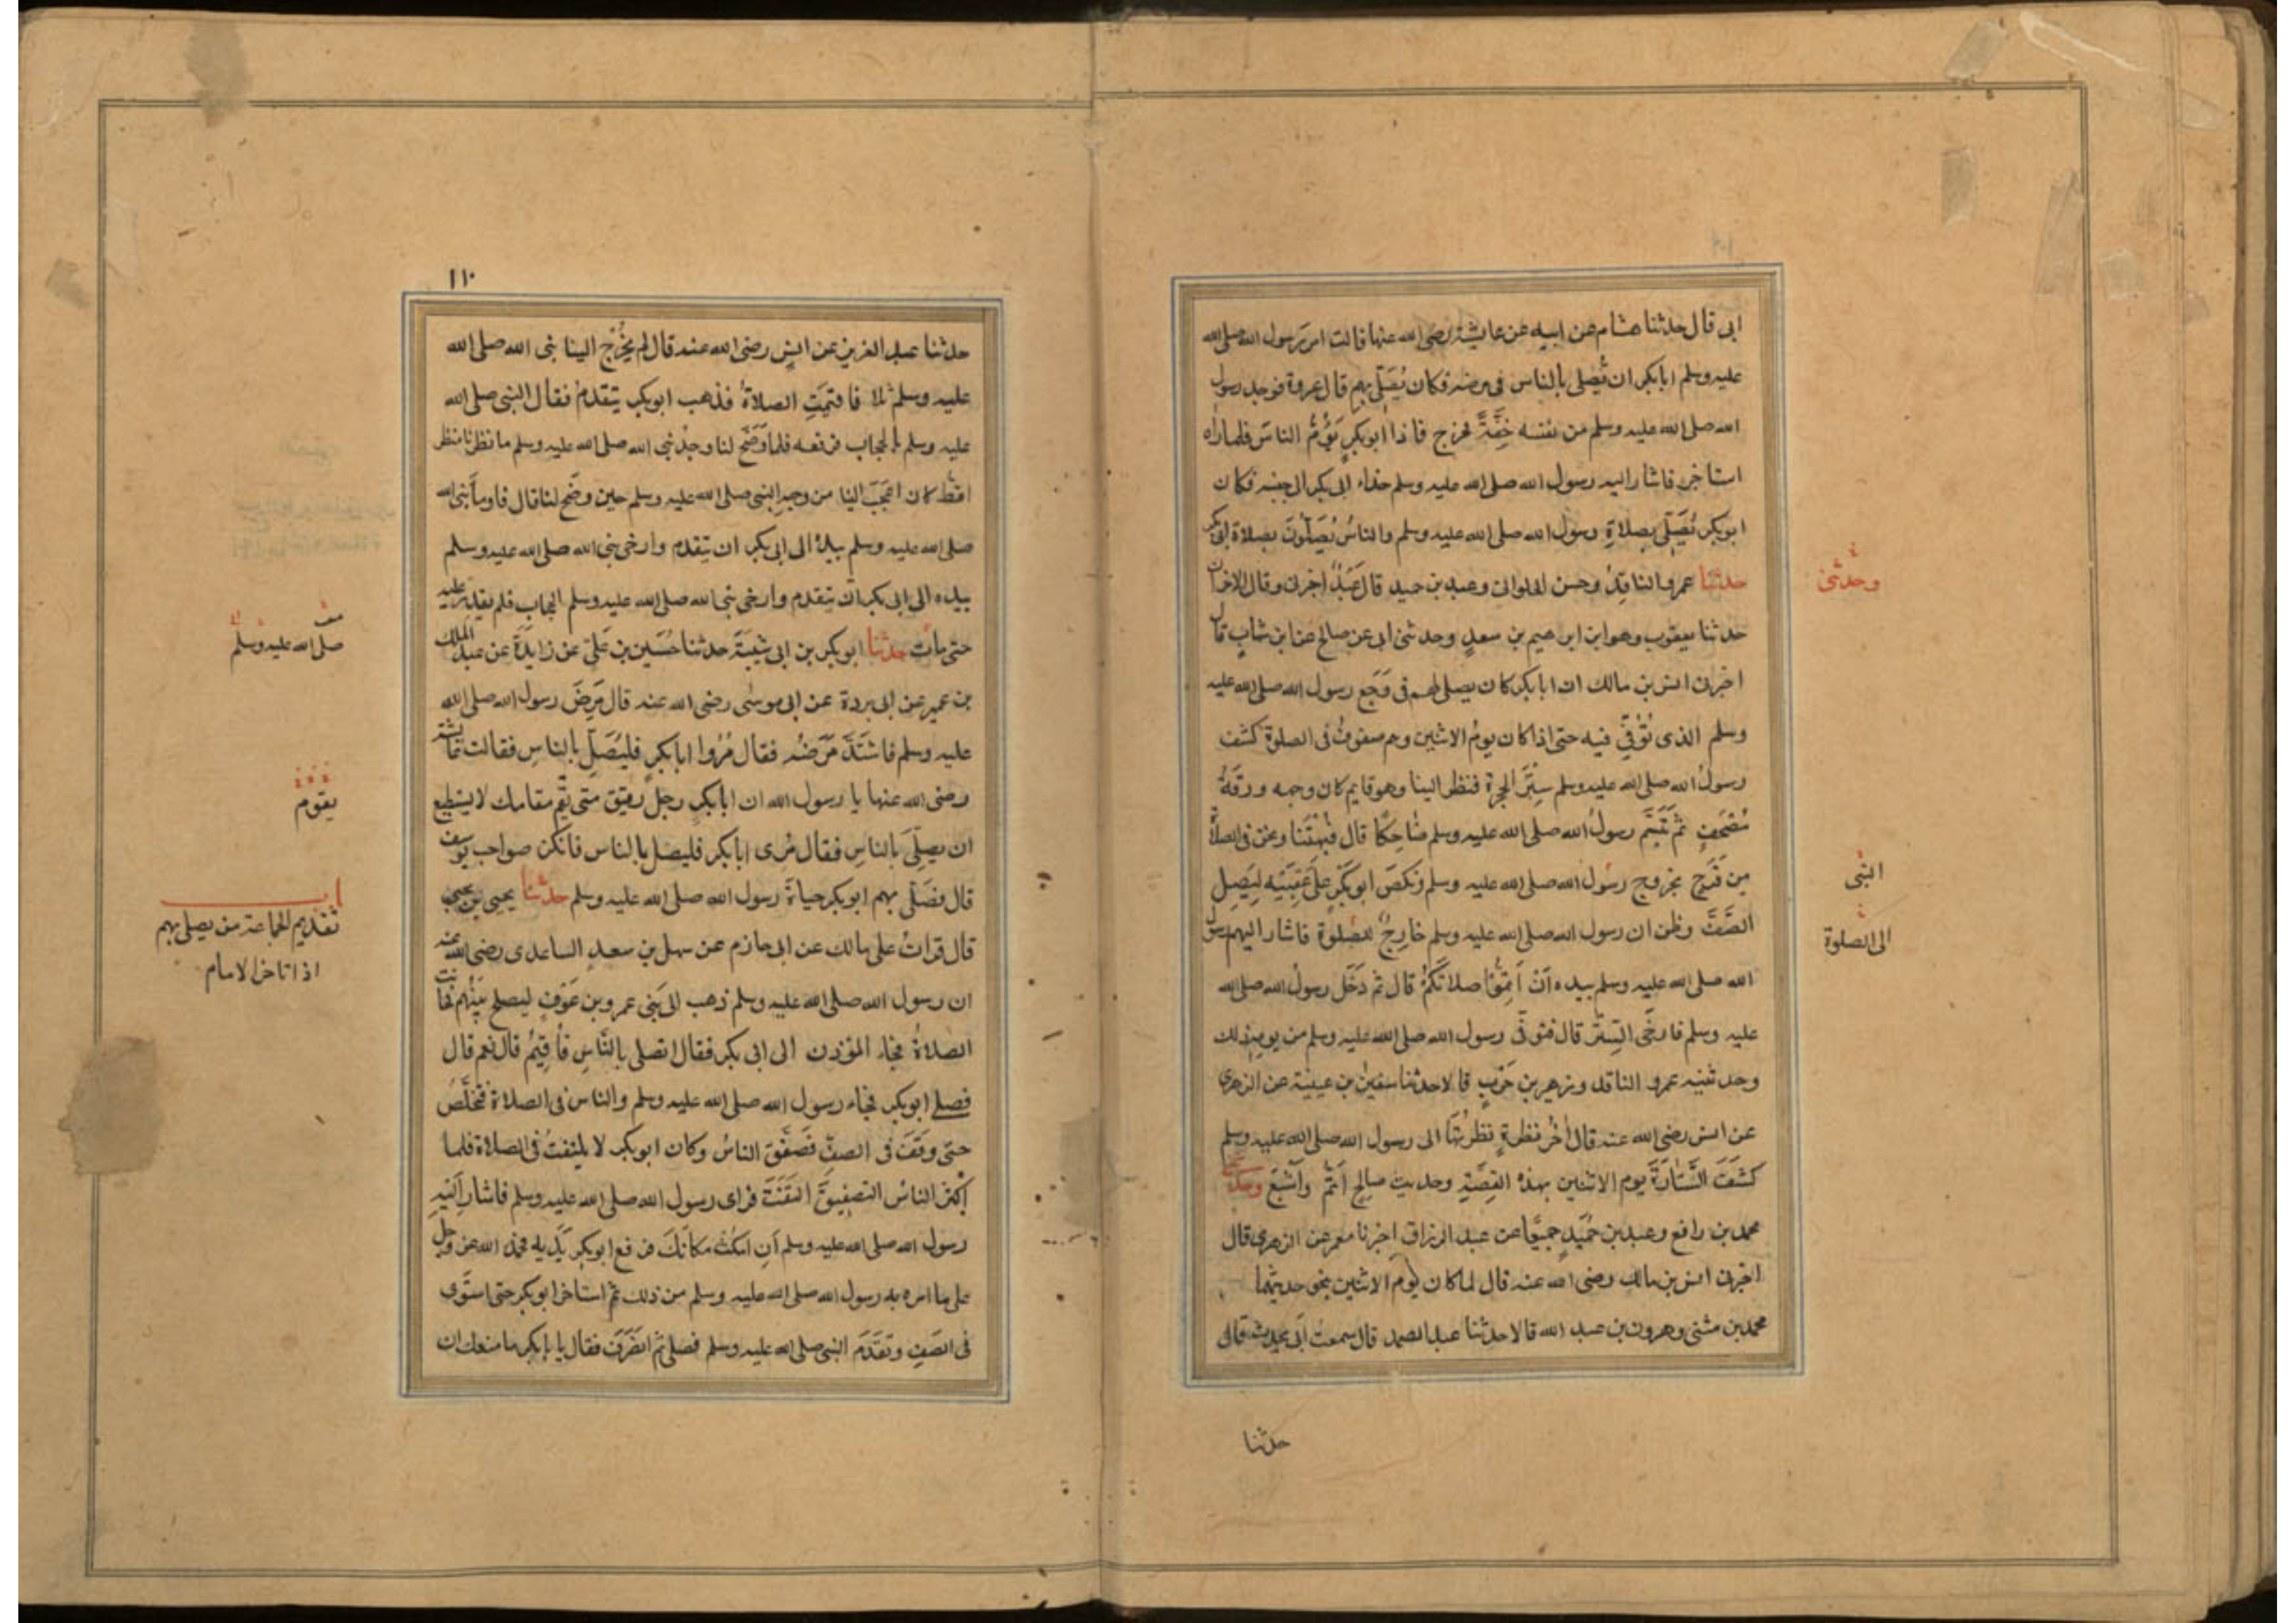 ابى قال حدثنا هشام عن ابيه عن عايشة رضى الله عنها قالت امر رسول الله صلى الله
عليه وسلم ابا بكر ان يُصلى بالناس فى مرضه فكان يُصَلِّى بهم قال عروة فوجد رسول
الله صلى الله عليه وسلم من نفسه خِفَّةً فخرج فاذا ابو بكرٍ يَؤُمُّ الناسَ فلما راه
استاخر فاشار اليه رسول الله صلى الله عليه وسلم حذاء ابى بكر الى جنبه فكان
ابو بكر يُصَلِّى بصلاةِ رسول الله صلى الله عليه وسلم والناسُ يُصَلُّونَ بصلاة ابى بكر
حدثنا عمرو الناقِدُ وحسن الحلوانى وعبد بن حميد قال عَبْدٌ اخبرنى وقال الاخران
وحدثنى
حدثنا يعقوب وهو ابن ابرهيم بن سعدٍ وحدثنى ابى عن صالح عن ابن شهابٍ قال
اخبرنى انس بن مالك ان ابا بكر كان يصلى لهم فى وَجَع رسول الله صلى الله عليه
وسلم الذى تُوُفِّىَ فيه حتى اذا كان يومُ الاثنين وهم صفوفٌ فى الصلوة كشف
رسولُ الله صلى الله عليه وسلم سِتْرَ الحجرة فنظر الينا وهو قايم كان وجهه ورقةُ
مُصْحَفٍ ثم تَبَسَّم رسولُ الله صلى الله عليه وسلم ضاحِكًا قال فبُهِتْنا ونحن فى الصلاة
من فَرَحٍ بخروج رسول الله صلى الله عليه وسلم ونكصَ ابو بكرٍ على عَقِبَيْه لِيَصِل
النبى
الصَّفَّ وظن ان رسول الله صلى الله عليه وسلم خارِجٌ للصلوة فاشار اليهم رسول
الى الصلوة
الله صلى الله عليه وسلم بيده اَنْ اَتِمُّوا صلاتَكُمْ قال ثم دَخَل رسولُ الله صلى الله
عليه وسلم فارخَى السِّتْرَ قال فتوفى رسول الله صلى الله عليه وسلم من يومه ذلك
وحدثنيه عمرو الناقد وزهير بن حَرْبٍ قالا حدثنا سفين بن عيينة عن الزهرى
عن انس رضى الله عنه قال اٰخر نظرةٍ نظرتُها الى رسول الله صلى الله عليه وسلم
كشفَ السِّتارَةَ يوم الاثنين بهذه القِصَّةِ وحديث صالح اَتَمُّ واَشْبَعُ وحدثنى
محمد بن رافع وعبد بن حُمَيدٍ جميعًا عن عبد الرزاق اخبرنا معمر عن الزهرى قال
اخبرنى انس بن مالك رضى الله عنه قال لما كان يوم الاثنين بنحو حديثهما
محمد بن مثنى وهرون بن عبد الله قالا حدثنا عبد الصمد قال سمعت ابى يحدث قال
حدثنا
١١٠
حدثنا عبد العزيز عن انسٍ رضى الله عنه قال لم يَخْرُج الينا نبى الله صلى الله
عليه وسلم ثلاثا فاقيمَتِ الصلاةُ فذهب ابو بكر يتقدمُ فقال النبى صلى الله
عليه وسلم بالحجاب فرفعه فلما وَضَحَ لنا وجهُ نبى الله صلى الله عليه وسلم ما نظرنا منظرا
قط كان اعجَبَ الينا من وجهِ النبى صلى الله عليه وسلم حين وضَحَ لنا قال فاومأ نبى الله
صلى الله عليه وسلم بيده الى ابى بكر ان يتقدم وارخى نبى الله صلى الله عليه وسلم
بيده الى ابى بكر ان يتقدم وارخى نبى الله صلى الله عليه وسلم الحجاب فلم يقدر عليه
حتى مات حدثنا ابو بكر بن ابى شَيْبَةَ حدثنا حُسَين بن عَلىٍ عن زايدَةَ عن عبد الملك
صلى الله عليه وسلم
بن عمير عن ابى بردة عن ابى موسَى رضى الله عنه قال مَرِضَ رسول الله صلى الله
عليه وسلم فاشتَدَّ مَرَضُه فقال مُرُوا ابا بكرٍ فليُصَلِّ بالناسِ فقالت عايشة
رضى الله عنها يا رسول الله ان ابا بكرٍ رجل رقيق متى يَقُم مقامك لا يستطيع
يقوم
ان يصلِّىَ بالناسِ فقال مُرِى ابا بكر فليصل بالناس فانكن صواحب يوسف
قال فصَلَّى بهم ابو بكر حياةَ رسول الله صلى الله عليه وسلم حدثنا يحيى بن يحيى
باب
تقديم الجماعة من يصلى بهم
اذا تاخر الامام
قال قراتُ على مالك عن ابى حازم عن سهل بن سعدٍ الساعدى رضى الله عنه
ان رسول الله صلى الله عليه وسلم ذهب الى بَنِى عمرو بن عَوْفٍ ليصلح بَيْنَهم فحانت
الصلاةُ فجاء المؤذن الى ابى بكر فقال اتصلى بالنَّاسِ فاُقِيمُ قال نعم قال
فصلى ابو بكر فجاء رسول الله صلى الله عليه وسلم والناس فى الصلاة فتخلَّصَ
حتى وقَفَ فى الصفِّ فصَفَّقَ الناسُ وكان ابو بكر لا يلتفتُ فى الصلاة فلما
اكثر الناسُ التصفِيقَ التَفَتَ فراى رسول الله صلى الله عليه وسلم فاشار اليهِ
رسول الله صلى الله عليه وسلم اَنِ امكُثْ مكانَكَ فرفع ابو بكر يَدَيه فحمد الله عز وجل
على ما امره به رسول الله صلى الله عليه وسلم من ذلك ثم استاخر ابو بكر حتى استَوَى
فى الصَفِّ وتَقَدَّمَ النبى صلى الله عليه وسلم فصلى ثم انصَرَفَ فقال يا با بكر ما منعك ان